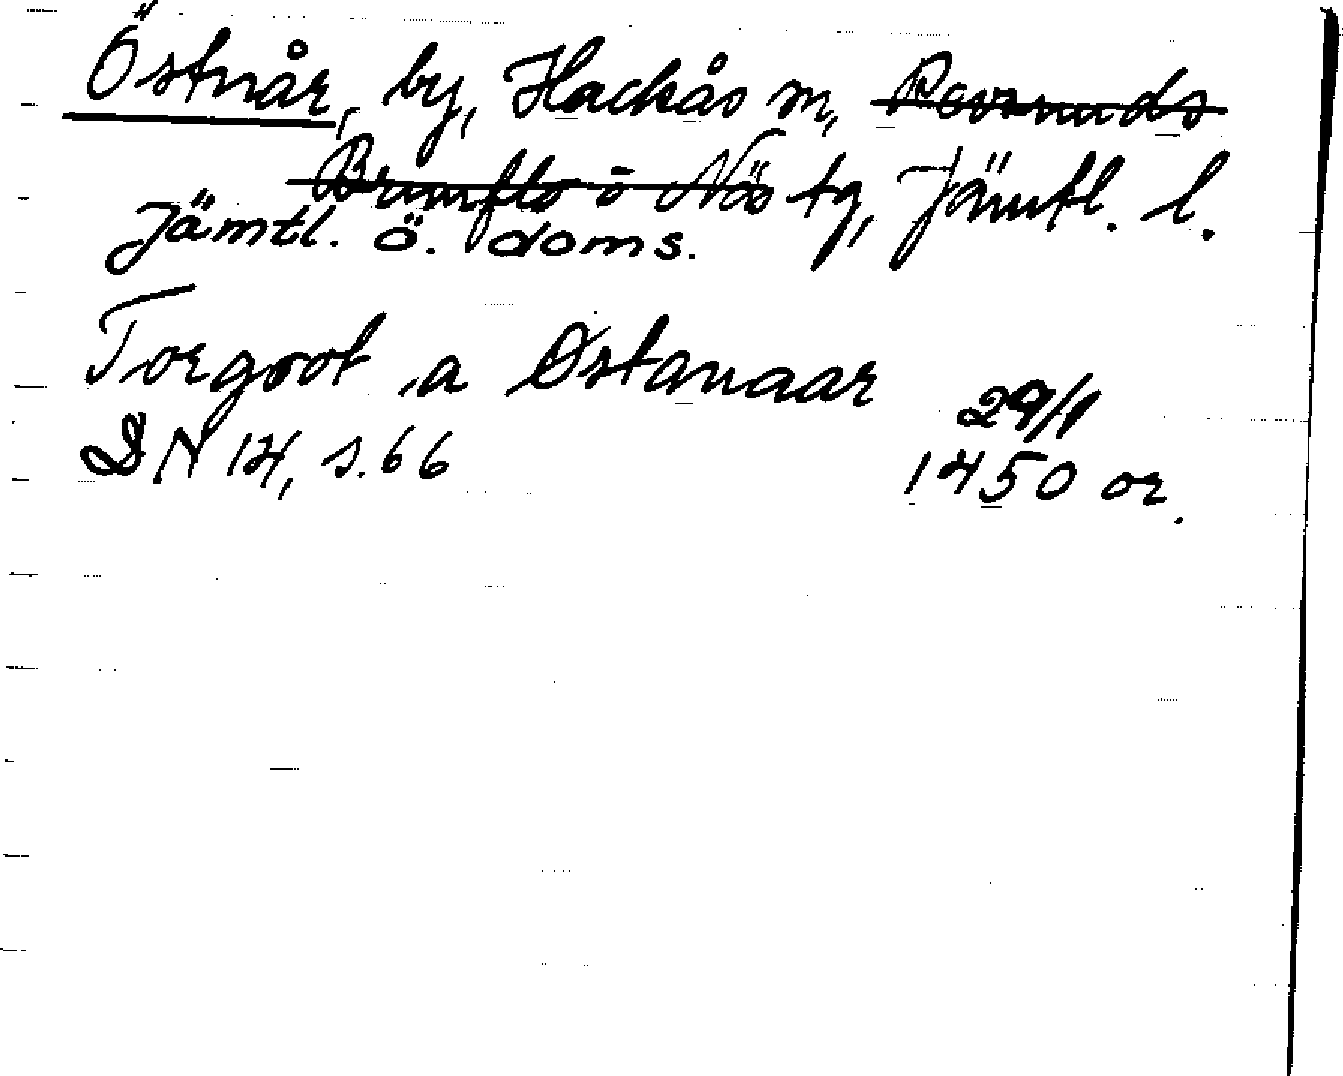 Östnår, by, Hackås sn, Revsunds
Brunflo o Näs tg, Jämtl. l.
Jämtl. ö. doms.
Torgrot a Østanaar
29/1
DN 14, s. 66 1450 or.